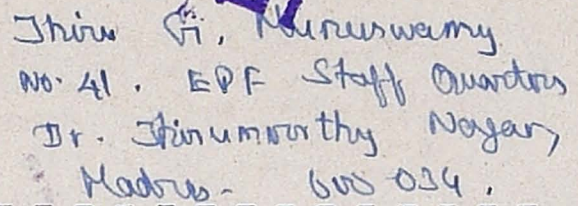 Thiru G. Munuswamy
No. 41. EPF Staff Quarters
Dr. Thirumoorthy Nagar,
Madras- 600 034.